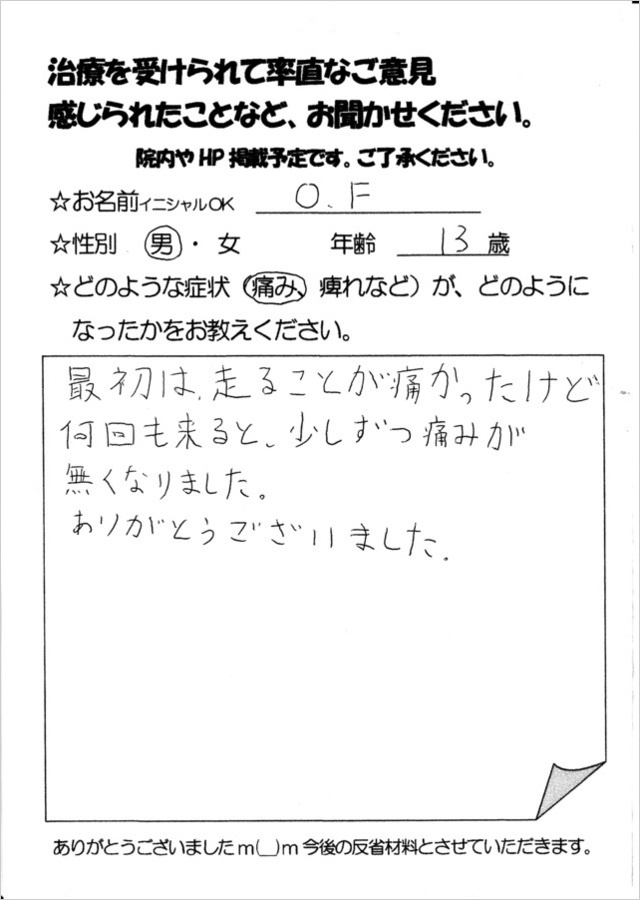 治療を受けられて率直なご意見
感じられたことなど、お聞かせください。
院内やHP掲載予定です。ご了承ください。
☆お名前イニシャルOK O.F
☆性別 男・女 年齢 13歳
☆どのような症状(痛み、痺れなど)が、どのように
なったかをお教えください。
最初は、走ることが痛かったけど
何回も来ると、少しずつ痛みが
無くなりました。
ありがとうございました.
ありがとうございましたm(__)m今後の反省材料とさせていただきます。